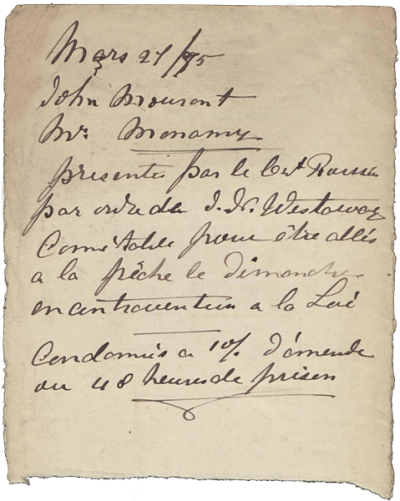 Mars 27/95
John Mourant
Mr. Monamy
presentés par le Cent. Romeril
par ordre du J. N. Westaway
Connétable pour être allés
a la pêche le Dimanche
en contravention a la Loi
Condamnés a 10/ d'amende
ou 48 heures de prison